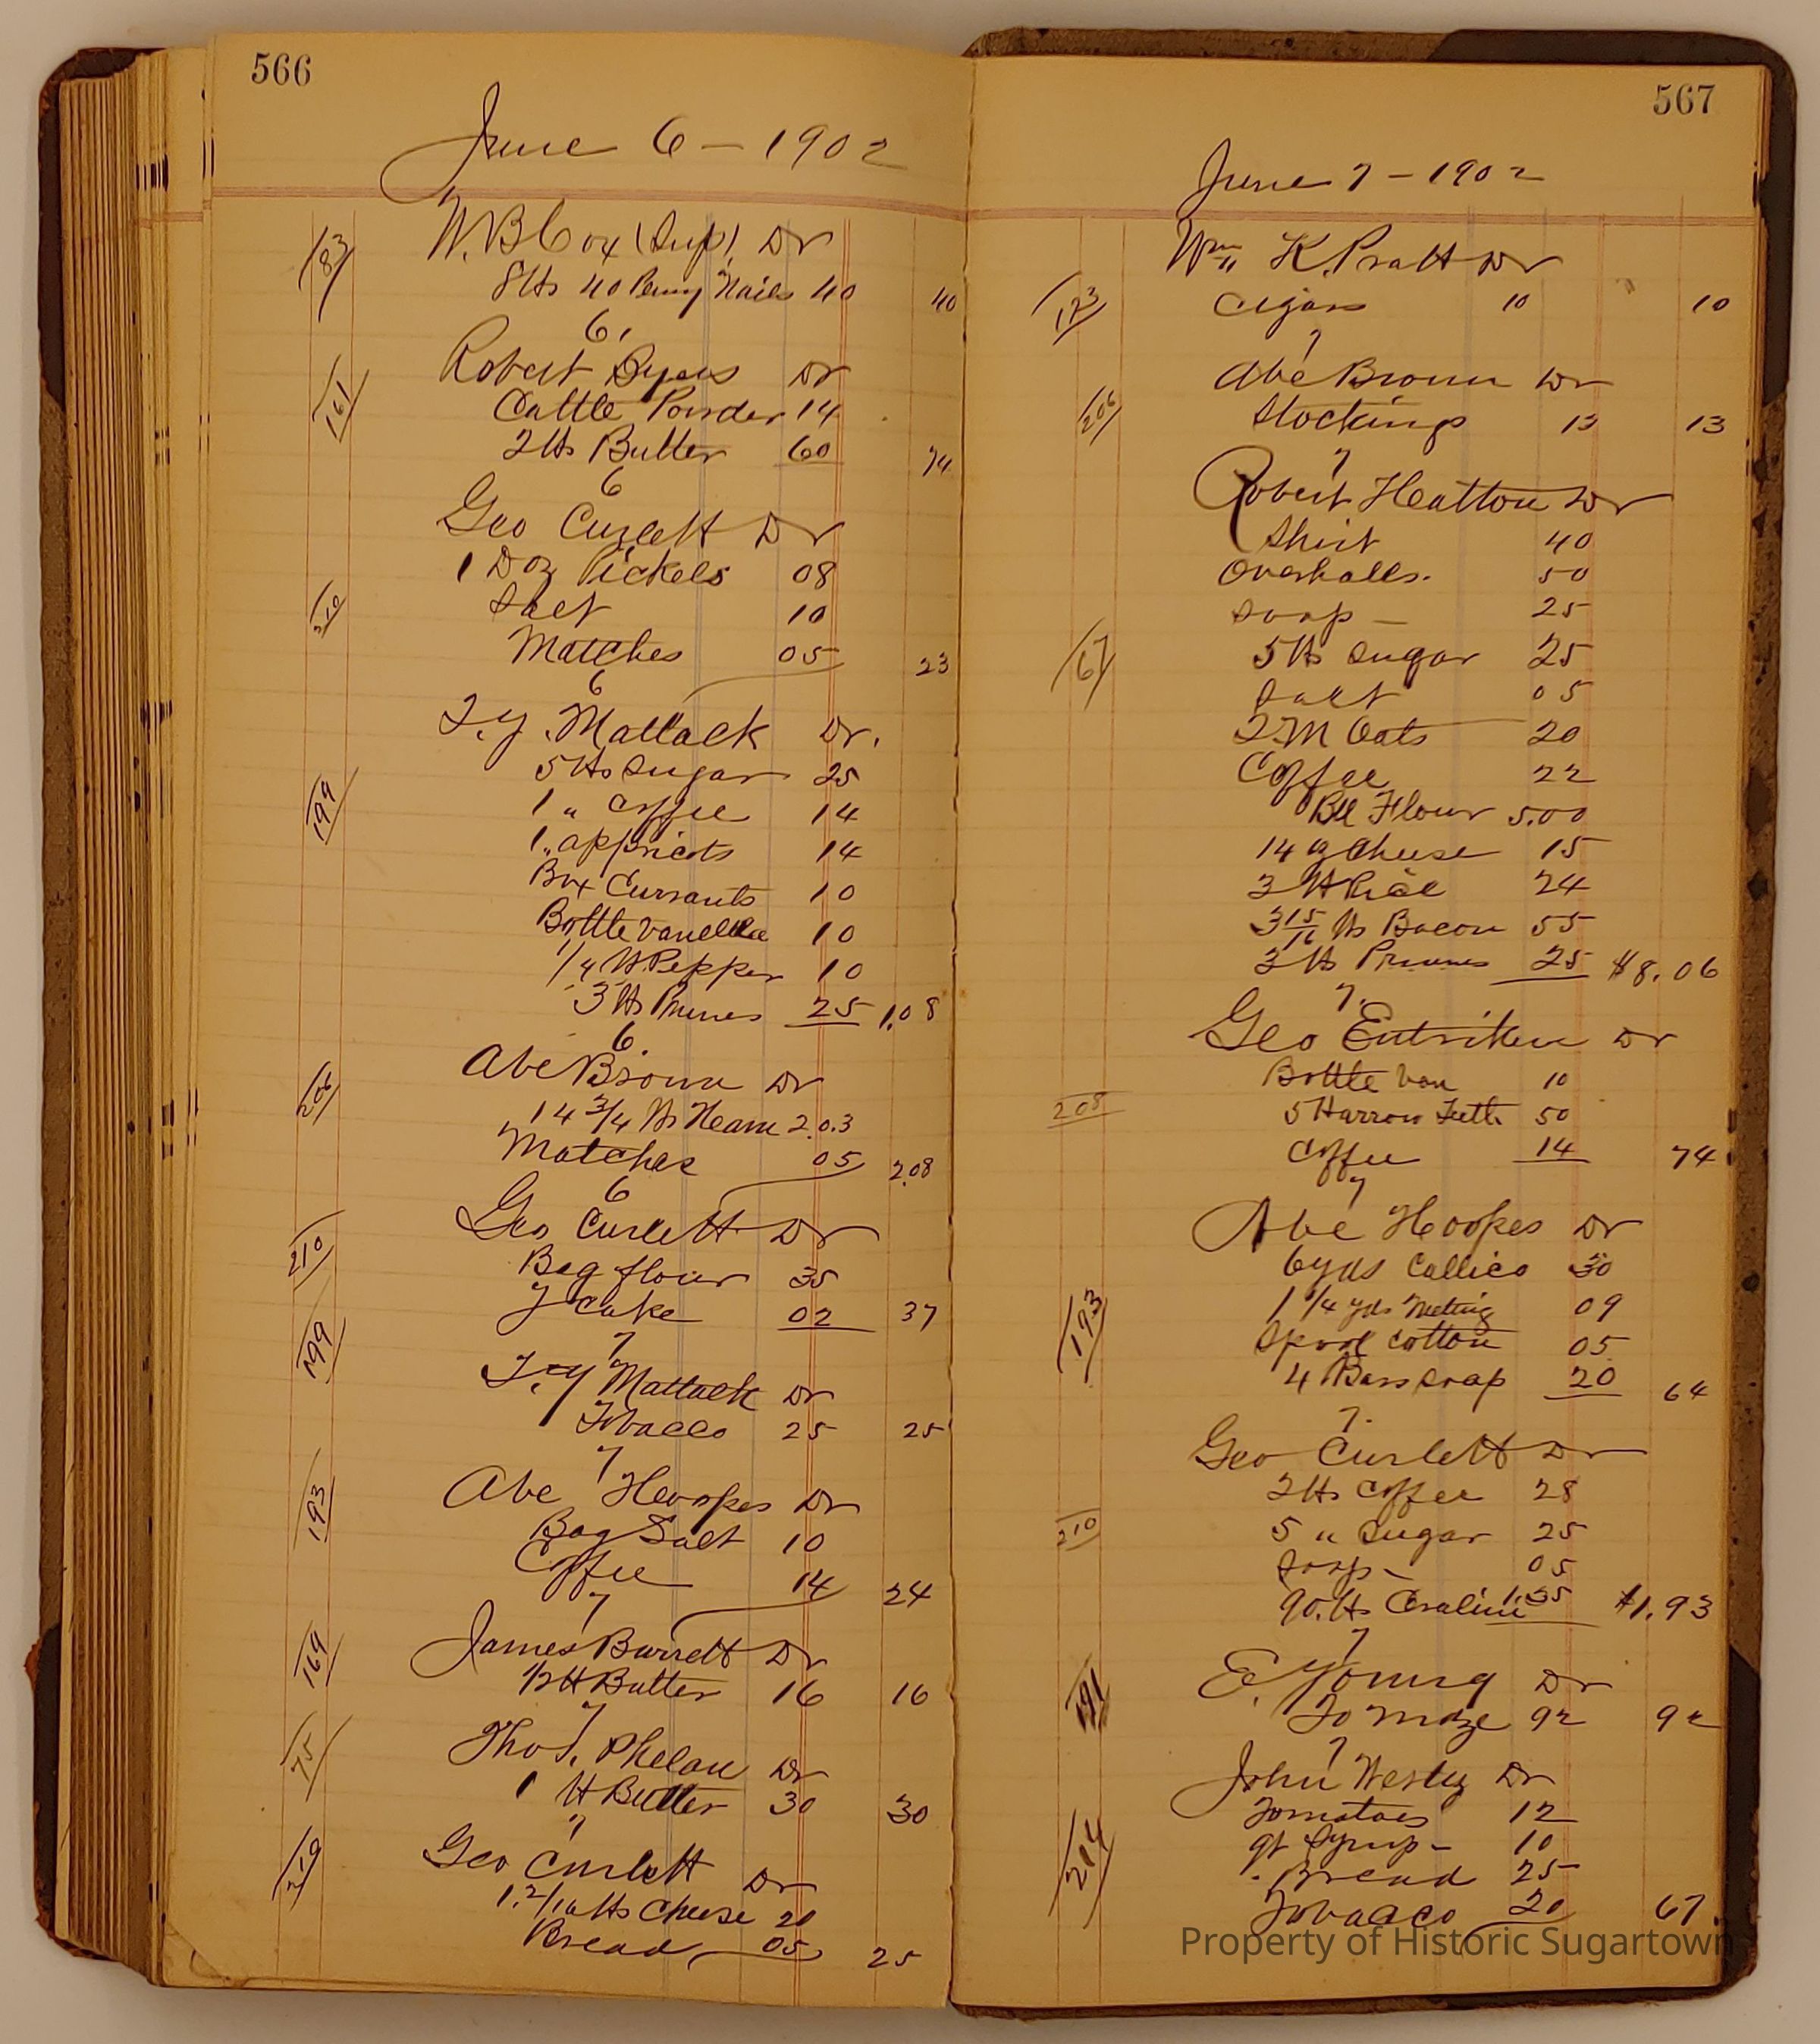 566
June 6 - 1902
83
W. B Cox (Sup) Dr
8 lbs 40 Penny Nails 40 40
6.
161
Robert Byers Dr
Cattle Powder 14
2 lbs Butter 60 74
6
Geo Curlett Dr
1 Doz Pickels 08
210
Salt 10
Matches 05 23
6
T. y. Matlack Dr.
5 lbs Sugar 25
199
1 " Coffee 14
1 " appricots 14
Box Currants 10
Bottle Vanella 10
1/4 lb Pepper 10
3 lbs Prunes 25 1.08
6.
Abe Brown Dr
206
14 3/4 lbs Heam 2.03
Matches 05 2.08
6
Geo Curlett Dr
210
Bag flour 35
y cake 02 37
199
7
T. y Matlack Dr
Tobacco 25 25
7
193
Abe Hoopes Dr
Bag Salt 10
Coffee 14 24
7
169
James Barrett Dr
1/2 lb Butter 16 16
7
75
Thos. Phelan Dr
1 lb Butter 30 30
7
210
Geo Curlett Dr
1.2/16 lbs Cheese 20
Bread 05 25
567
June 7 - 1902
Wm K. Pratt Dr
173
Cigars 10 10
7
Abe Brown Dr
206
Stockings 13 13
7
Robert Hatton Dr
Shirt 40
Overhalls. 50
Soap - 25
67
5 lbs Sugar 25
Salt 05
2. M Oats 20
Coffee 22
Bbl Flour 5.00
14 oz Cheese 15
3 lb Rice 24
3 15/16 lbs Bacon 55
3 lbs Prunes 25 $8.06
7.
Geo Entriken Dr
Bottle Van 10
208
5 Harrow Teeth 50
Coffee 14 74
7
Abe Hoopes Dr
6 yds Callico 30
193
1 1/4 yds Netting 09
Spool Cotton 05
4 Bars soap 20 64
7.
Geo Curlett Dr
2 lbs Coffee 28
210
5 " Sugar 25
Soap - 05
90. lbs Ceraline 1.35 $1.93
7
191
E. Young Dr
To Mdze 92 92
7
John Westy Dr
Tomatoes 12
214
qt Syrup - 10
Bread 25
Tobacco 20 67
Property of Historic Sugartown